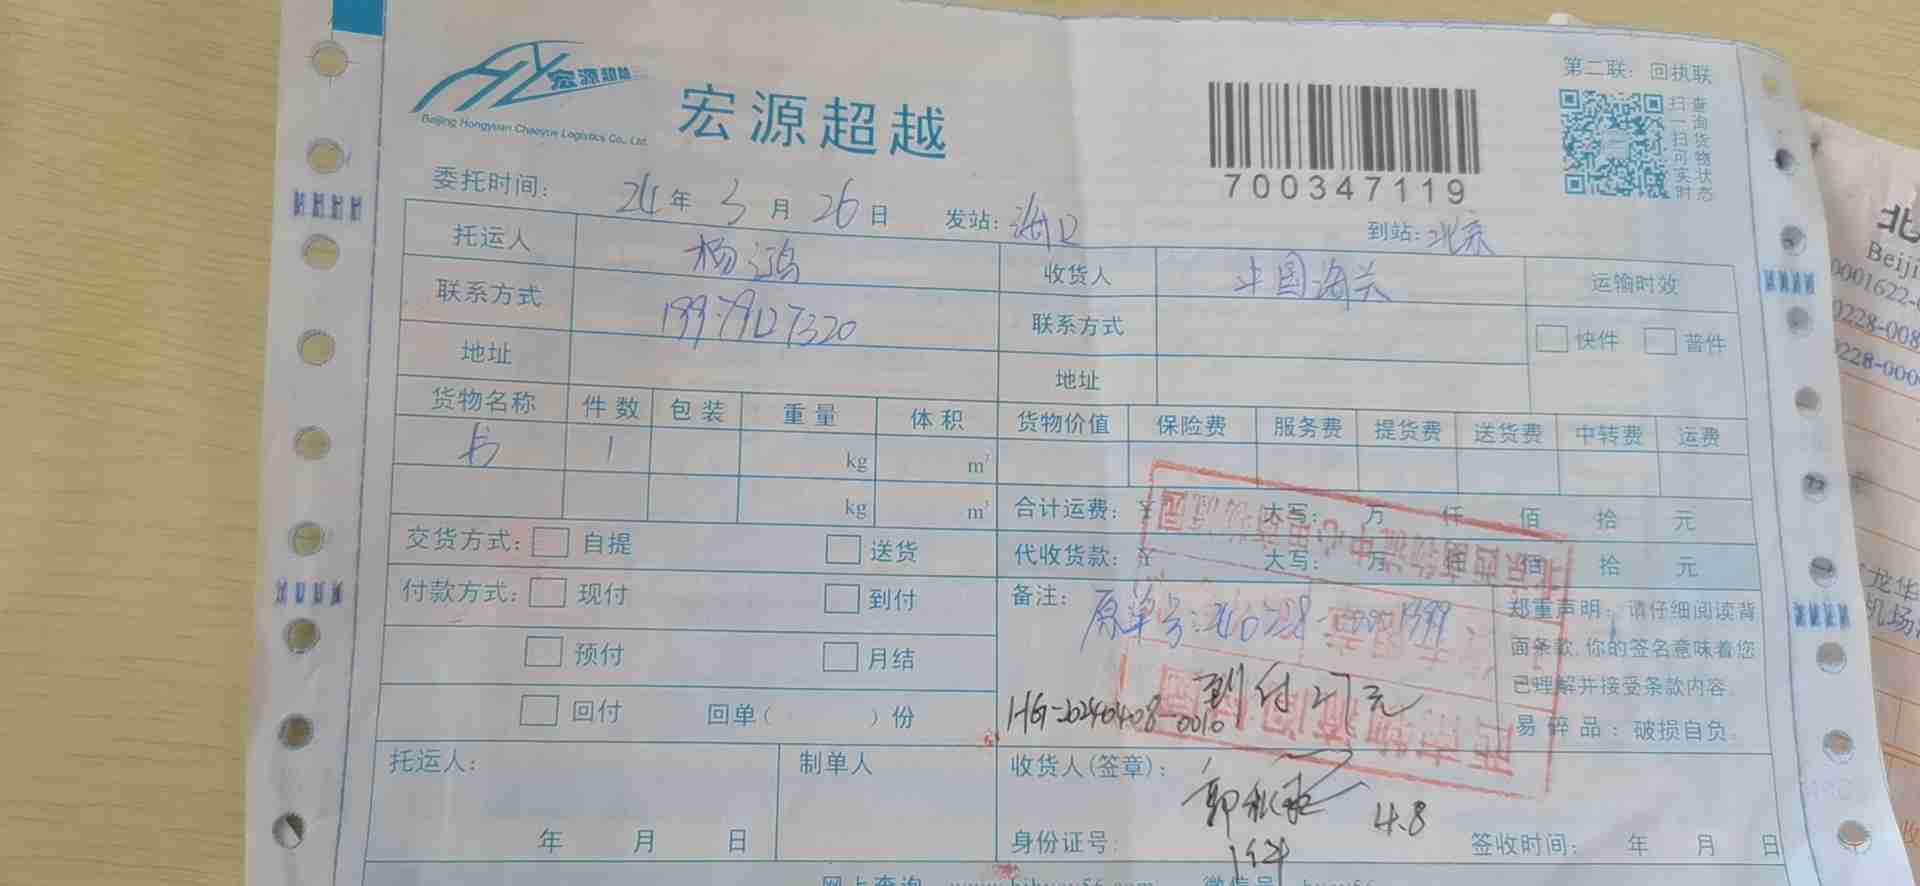 第二联：回执联
宏源超越
Beijing Hongyuan Chaoyue Logistics Co., Ltd.
宏源超越
700347119
扫一扫可实时
查询货物状态
委托时间： 24 年 3 月 26 日 发站：海口 到站：北京
托运人 杨鸿 收货人 中国海关 运输时效
联系方式 19979127320 联系方式 快件 普件
地址 地址
货物名称 件数 包装 重量 体积 货物价值 保险费 服务费 提货费 送货费 中转费 运费
书 1 kg m³
kg m³ 合计运费：¥ 大写： 万 仟 佰 拾 元
交货方式： 自提 送货 代收货款：¥ 大写： 万 仟 佰 拾 元
付款方式： 现付 到付 备注：
预付 月结
回付 回单（ ）份
到付27元
HG-20240408-0010
郑重声明：请仔细阅读背
面条款，你的签名意味着您
已理解并接受条款内容。
易碎品：破损自负。
托运人： 制单人 收货人(签章)：
4.8
1件
年 月 日 身份证号： 签收时间： 年 月 日
北
Beiji
0228-008
228-000
龙华
机场